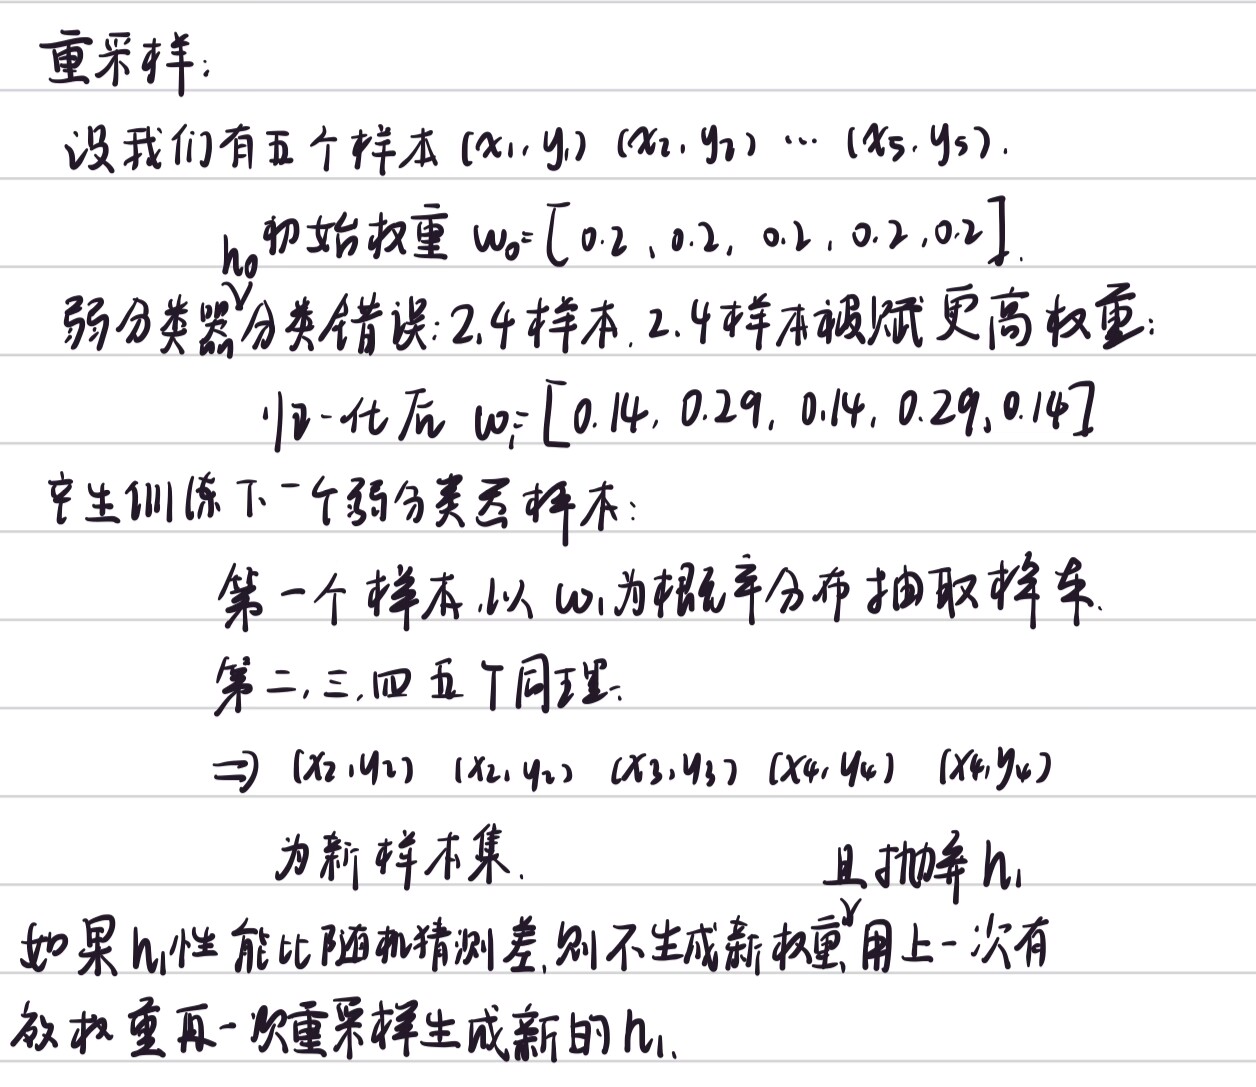 重采样:
设我们有五个样本 (x₁, y₁) (x₂, y₂) ⋯ (x₅, y₅).
初始权重 w₀=[0.2, 0.2, 0.2, 0.2, 0.2].
弱分类器h₀分类错误: 2,4样本. 2.4样本被赋更高权重:
归一化后 w₁=[0.14, 0.29, 0.14, 0.29, 0.14]
产生训练下一个弱分类器样本:
第一个样本以 w₁为概率分布抽取样本.
第二,三,四五个同理.
⇒ (x₂,y₂) (x₂,y₂) (x₃,y₃) (x₄,y₄) (x₄,y₄)
为新样本集.
如果h₁性能比随机猜测差,则不生成新权重且抛弃h₁,用上一次有
效权重再一次重采样生成新的h₁.